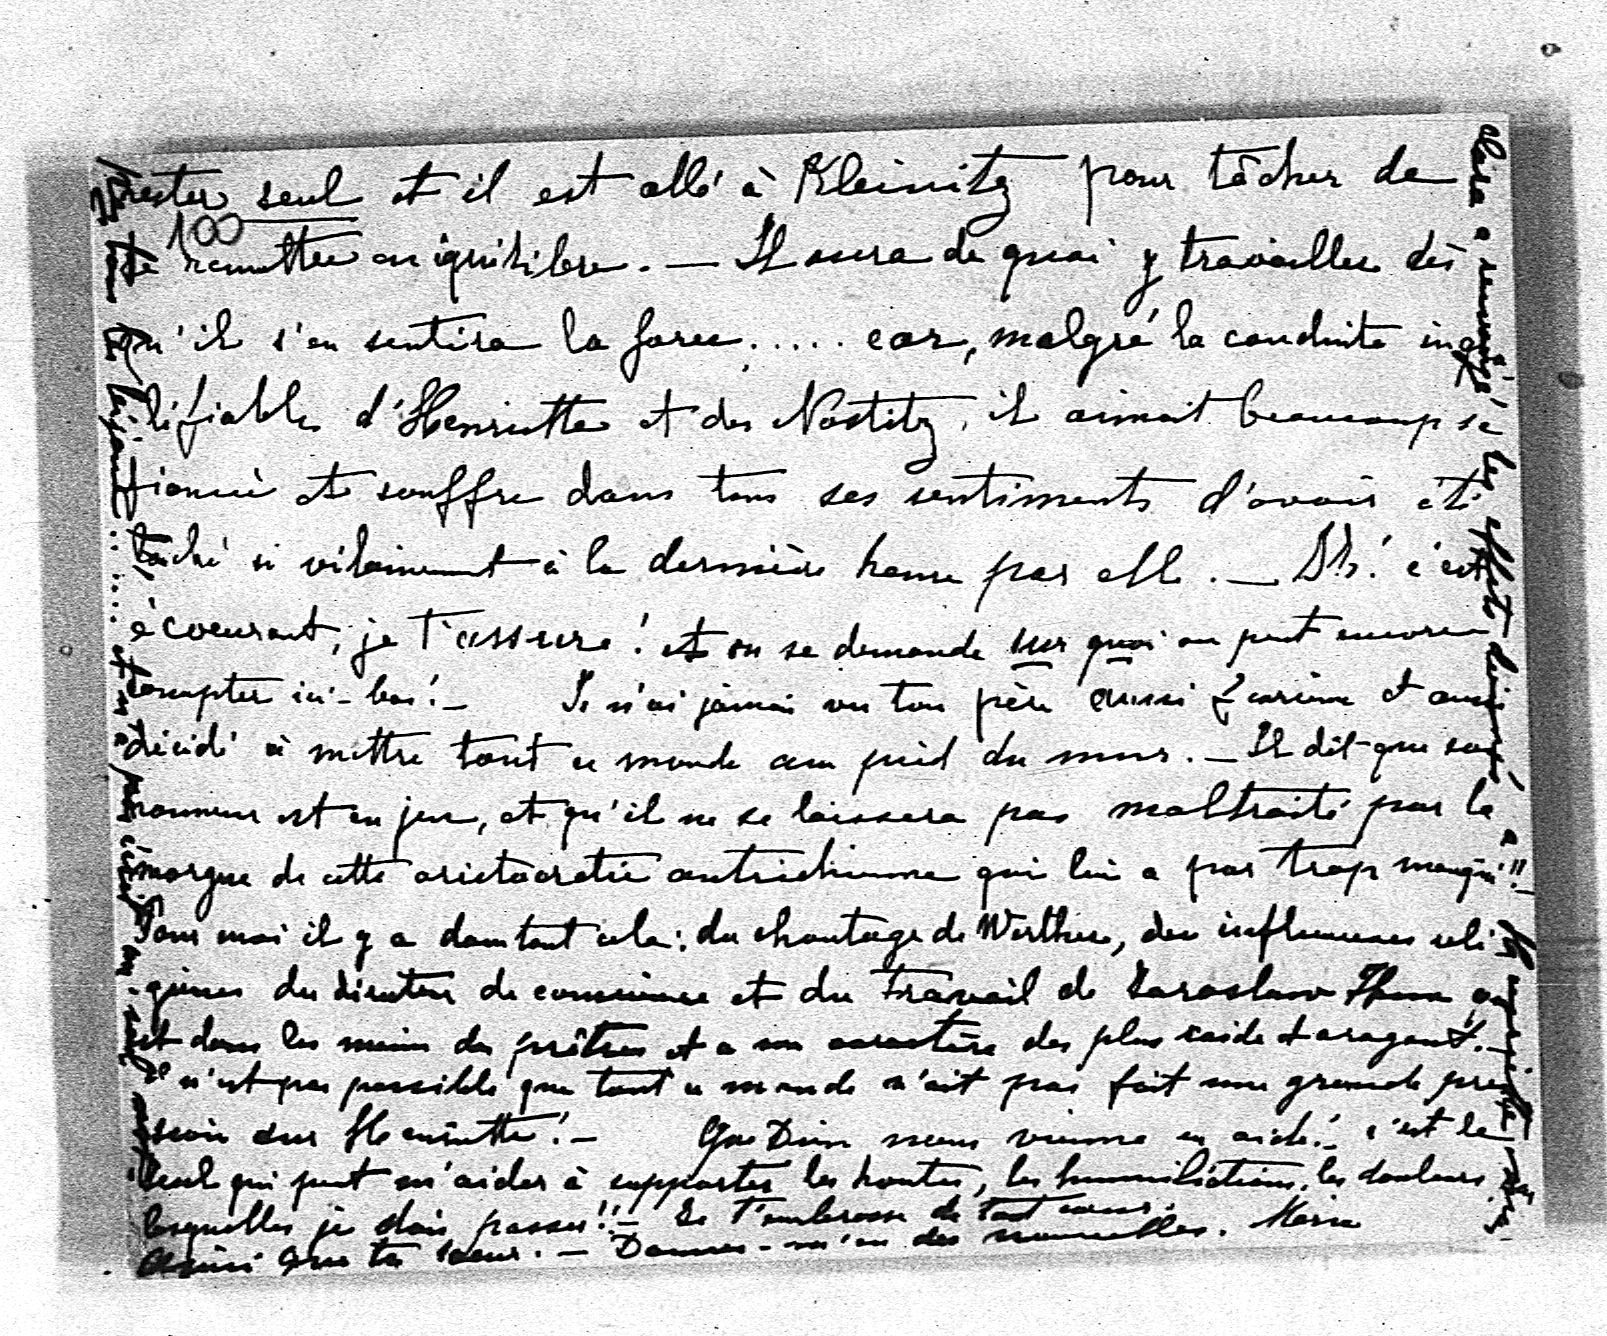 rester seul et il est allé à Kleinitz pour tâcher de
100
se remettre en équilibre. — Il aura de quoi y travailler dès
qu'il s'en sentira la force..... car, malgré la conduite inqua
lifiable d'Henriette et des Nostitz, il aimait beaucoup sa
fiancée et souffre dans tous ses sentiments d'avoir été
lâché si vilainement à la dernière heure par elle. — Ah! c'est
écoeurant, je t'assure! et on se demande sur quoi on peut encore
compter ici-bas! — Je n'ai jamais vu ton père aussi et aussi
décidé à mettre tout ce monde au pied du mur. — Il dit que son
honneur est en jeu, et qu'il ne se laissera pas maltraité par la
morgue de cette aristocratie autrichienne qui lui a par trop manqué!! —
Pour moi il y a dans tout cela: du chantage de Werther, des influences reli
gieuses du directeur de conscience et du travail de Jaroslaw Thun qui
est dans les mains des prêtres et a un caractère des plus raide et arogant. —
Il n'est pas possible que tout ce monde n'ait pas fait une grande pres
sion sur Henriette! — Que Dieu nous vienne en aide! — c'est le
seul qui peut m'aider à supporter les hontes, les humiliations, les douleurs par
lesquelles je dois passer!! — Je t'embrasse de tout coeur
ainsi que ta soeur. — Donnes-m'en des nouvelles. Marie